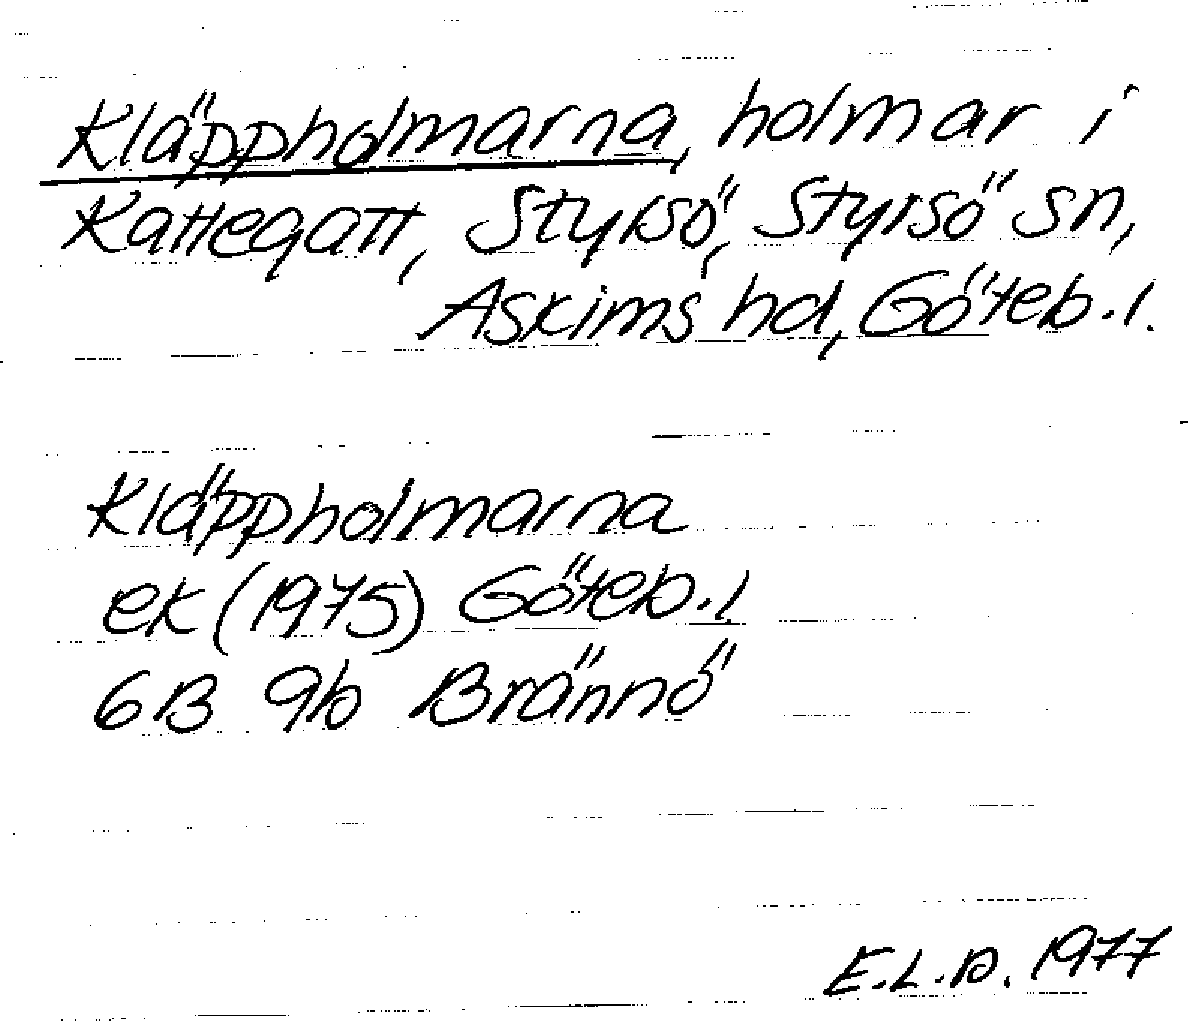 Kläppholmarna, holmar i
Kattegatt, Styrsö, Styrsö sn,
Askims hd, Göteb. l.
Kläppholmarna
ek (1975) Göteb. l.
6B 9b Brännö
E.L.D. 1977